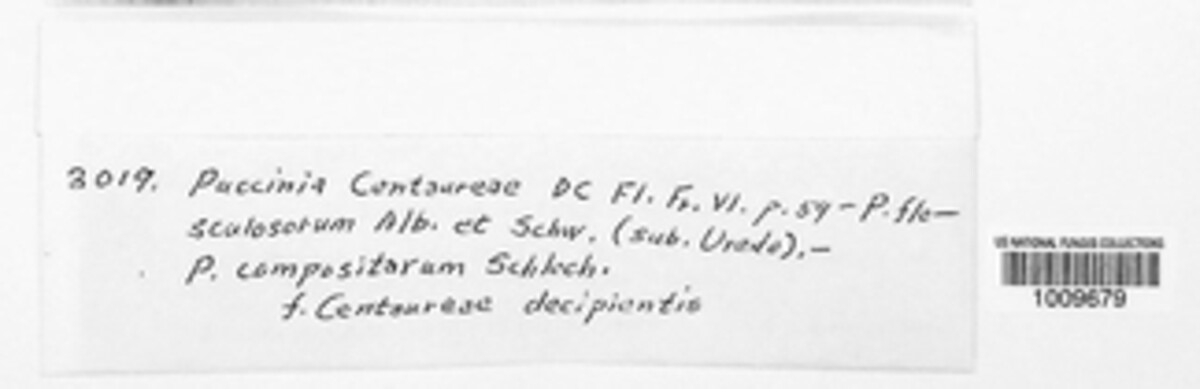 3019. Puccinia Centaureae DC Fl. Fr. VI. p. 59 – P. flo–
sculosorum Alb. et Schw. (sub. Uredo). –
P. compositarum Schlech.
f. Centaureae decipientis
US NATIONAL FUNGUS COLLECTIONS
1009679